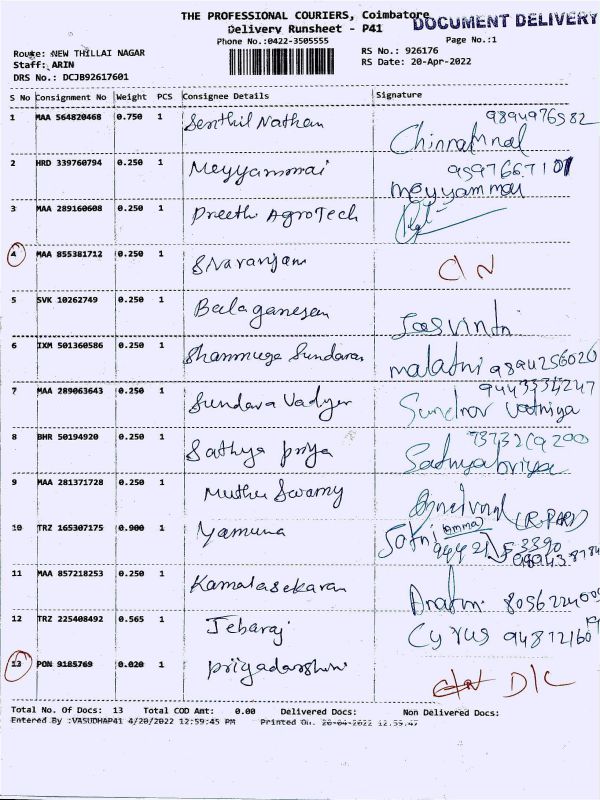 THE PROFESSIONAL COURIERS, Coimbatore
DOCUMENT DELIVERY
Delivery Runsheet - P41
Phone No.:0422-3505555
Page No.:1
Route: NEW THILLAI NAGAR
RS No.: 926176
Staff: ARIN
RS Date: 20-Apr-2022
DRS No.: DCJB92617601
S No Consignment No Weight PCS Consignee Details Signature
1 MAA 564820468 0.750 1 Senthil Nathan 9894976582
Chinnammal
2 HRD 339760794 0.250 1 Meyyammai
meyyammai
3 MAA 289160608 0.250 1 Preethi AgroTech
4 MAA 855381712 0.250 1 S Naranjani
5 SVK 10262749 0.250 1 Balaganesan
6 IXM 501360586 0.250 1 Shanmuga Sundaran malathi 9894256026
7 MAA 289063643 0.250 1 Sundara Vadyer
8 BHR 50194920 0.250 1 Sathya priya
Sathyapriya
9 MAA 281371728 0.250 1 Muthu Swamy
10 TRZ 165307175 0.900 1 Yamuna
(amma)
11 MAA 857218253 0.250 1 Kamalasekaran
12 TRZ 225408492 0.565 1 Jebaraj Cyrus
13 PON 9185769 0.020 1 Priyadarshini D/C
Total No. Of Docs: 13 Total COD Amt: 0.00 Delivered Docs: Non Delivered Docs:
Entered By :VASUDHAP41 4/20/2022 12:59:45 PM Printed On: 20-04-2022 12:59:47